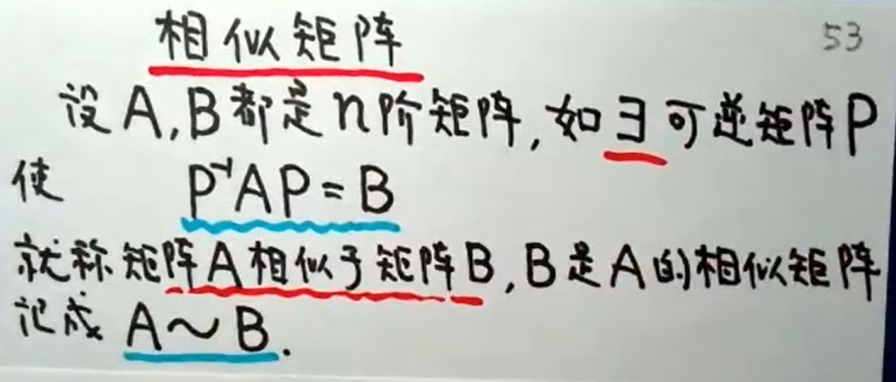 相似矩阵 53
设A,B都是n阶矩阵,如∃可逆矩阵P
使 P⁻¹AP=B
就称矩阵A相似于矩阵B,B是A的相似矩阵
记成 A~B.